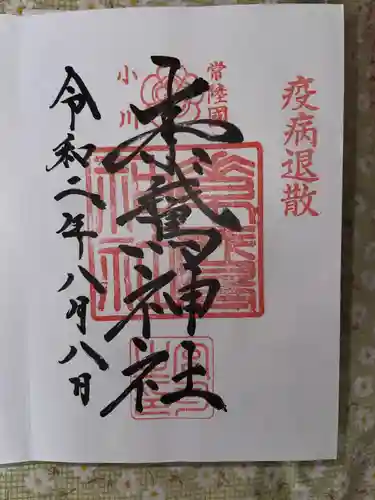 疫病退散
常陸國
小川
素鵞神社
令和二年八月八日